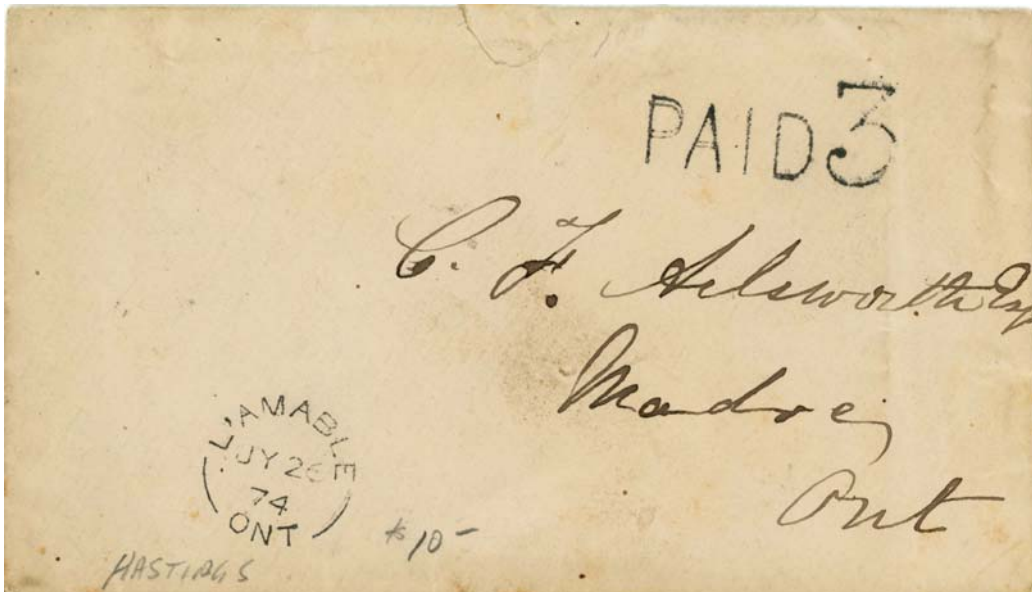 PAID 3
C. F. Aelsworth Esq
Madoc
Ont
L'AMABLE
JY 26
74
ONT
$10-
HASTINGS